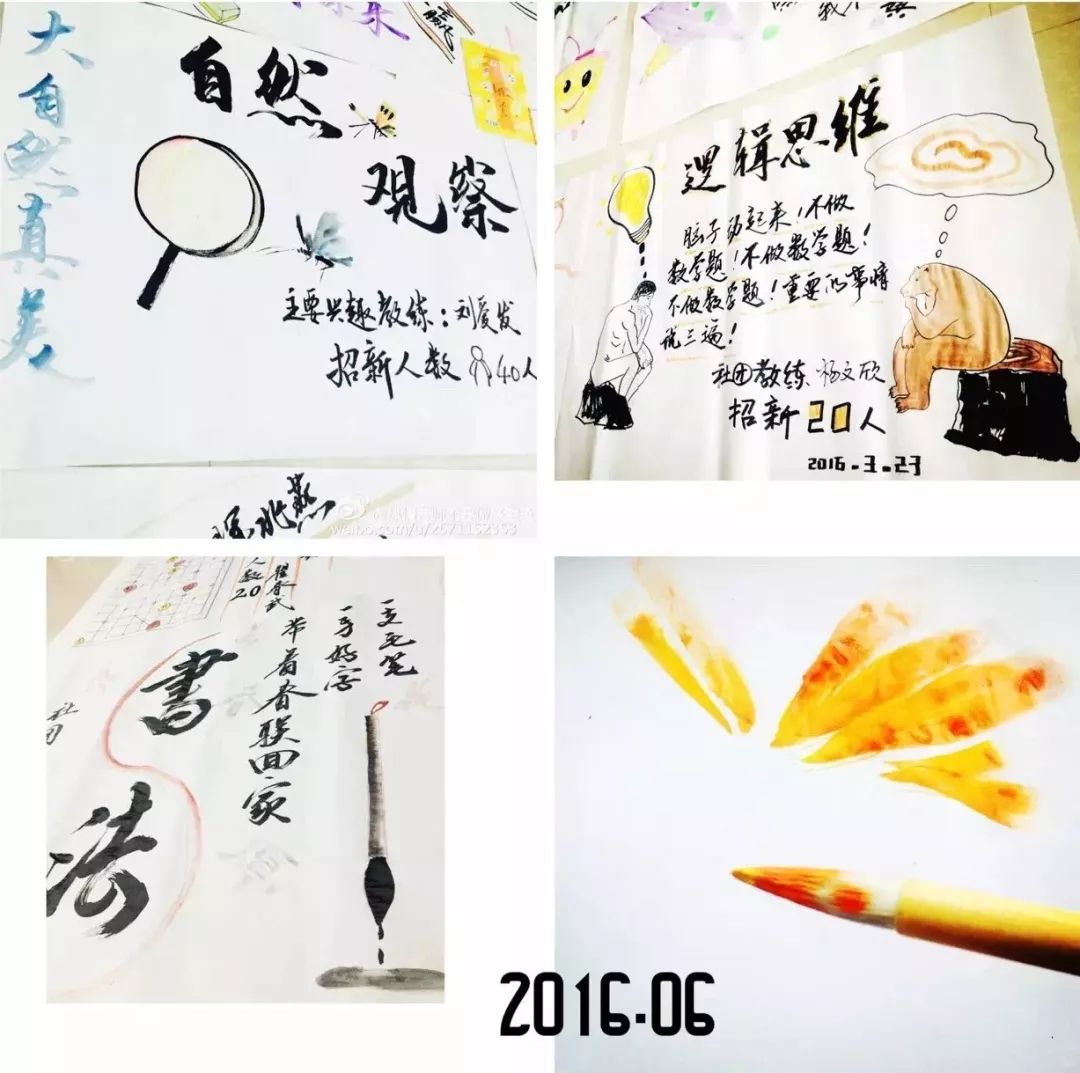 大自然真美
自然
观察
主要兴趣教练:刘爱发
招新人数 40人
燕
weibo.com/u/2671152353
逻辑思维
脑子动起来!不做
数学题!不做数学题!
不做数学题!重要的事情
说三遍!
社团教练:杨文欣
招新20人
2016.3.23
人数20
書法
社团
一支毛笔
一手好字
带着春联回家
2016.06